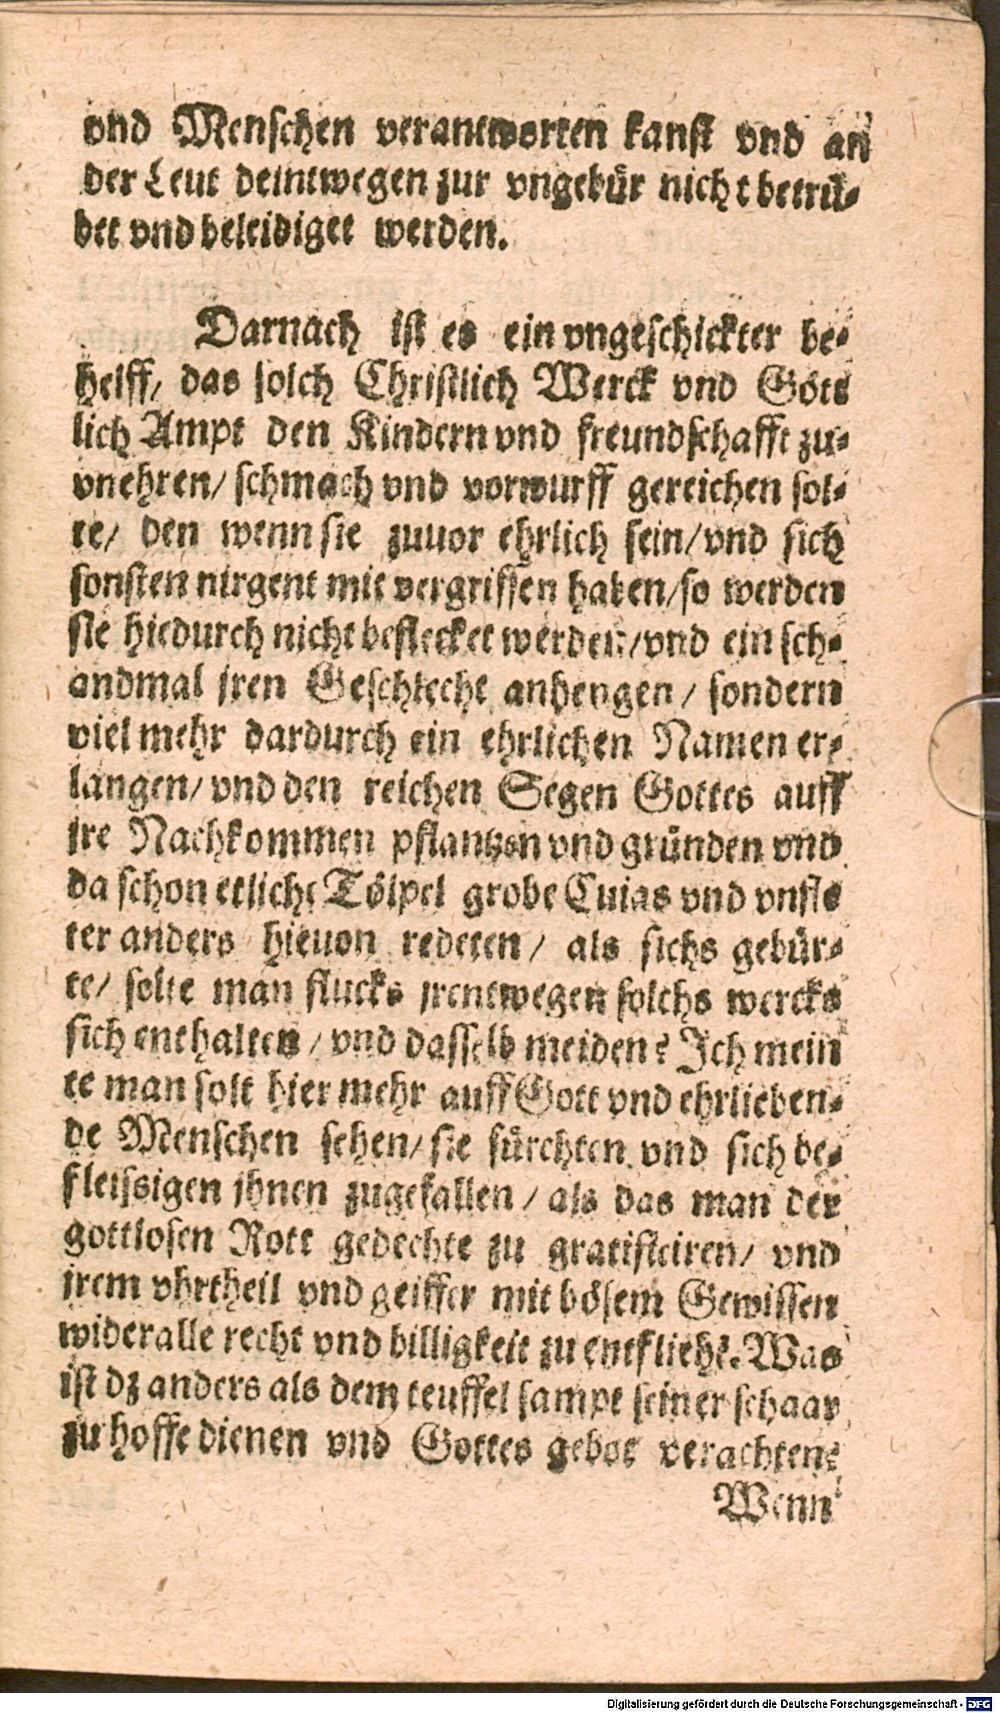 vnd Menschen verantworten kanst vnd an
der Leut deintwegen zur vngebür nicht betrü-
bet vnd beleidiget werden.
Darnach ist es ein vngeschickter be-
helff/ das solch Christlich Werck vnd Göts
lich Ampt den Kindern vnd freundschafft zu-
vnehren/ schmach vnd vorwurff gereichen sol-
te/ den wenn sie zuuor ehrlich sein/ vnd sich
sonsten nirgent mit vergriffen haben/ so werden
sie hiedurch nicht beflecket werden/ vnd ein sch-
andmal jren Geschlecht anhengen/ sondern
viel mehr dardurch ein ehrlichen Namen er-
langen/ vnd den reichen Segen Gottes auff
jre Nachkommen pflantzen vnd gründen vnd
da schon etliche Tölpel grobe Cuias vnd vnfle
ter anders hieuon redeten/ als sichs gebür-
te/ solte man flucks jrentwegen solchs wercks
sich enthalten/ vnd dasselb meiden? Ich mein
te man solt hier mehr auff Gott vnd ehrlieben-
de Menschen sehen/ sie fürchten vnd sich be-
fleissigen jhnen zugefallen/ als das man der
gottlosen Rott gedechte zu gratificiren/ vnd
jrem vhrtheil vnd geiffer mit bösem Gewissen
wider alle recht vnd billigkeit zu entfliehē. Was
ist dz anders als dem teuffel sampt seiner schaar
zu hoffe dienen vnd Gottes gebot verachten?
Wenn
Digitalisierung gefördert durch die Deutsche Forschungsgemeinschaft - DFG